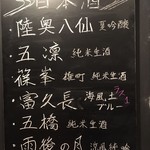 日本酒
・陸奥八仙 夏吟醸
・五凛 純米生酒
・篠峯 櫂町 純米生酒
・富久長 海風土ブルー
・五橋 純米生酒
・雨後の月 涼風純吟